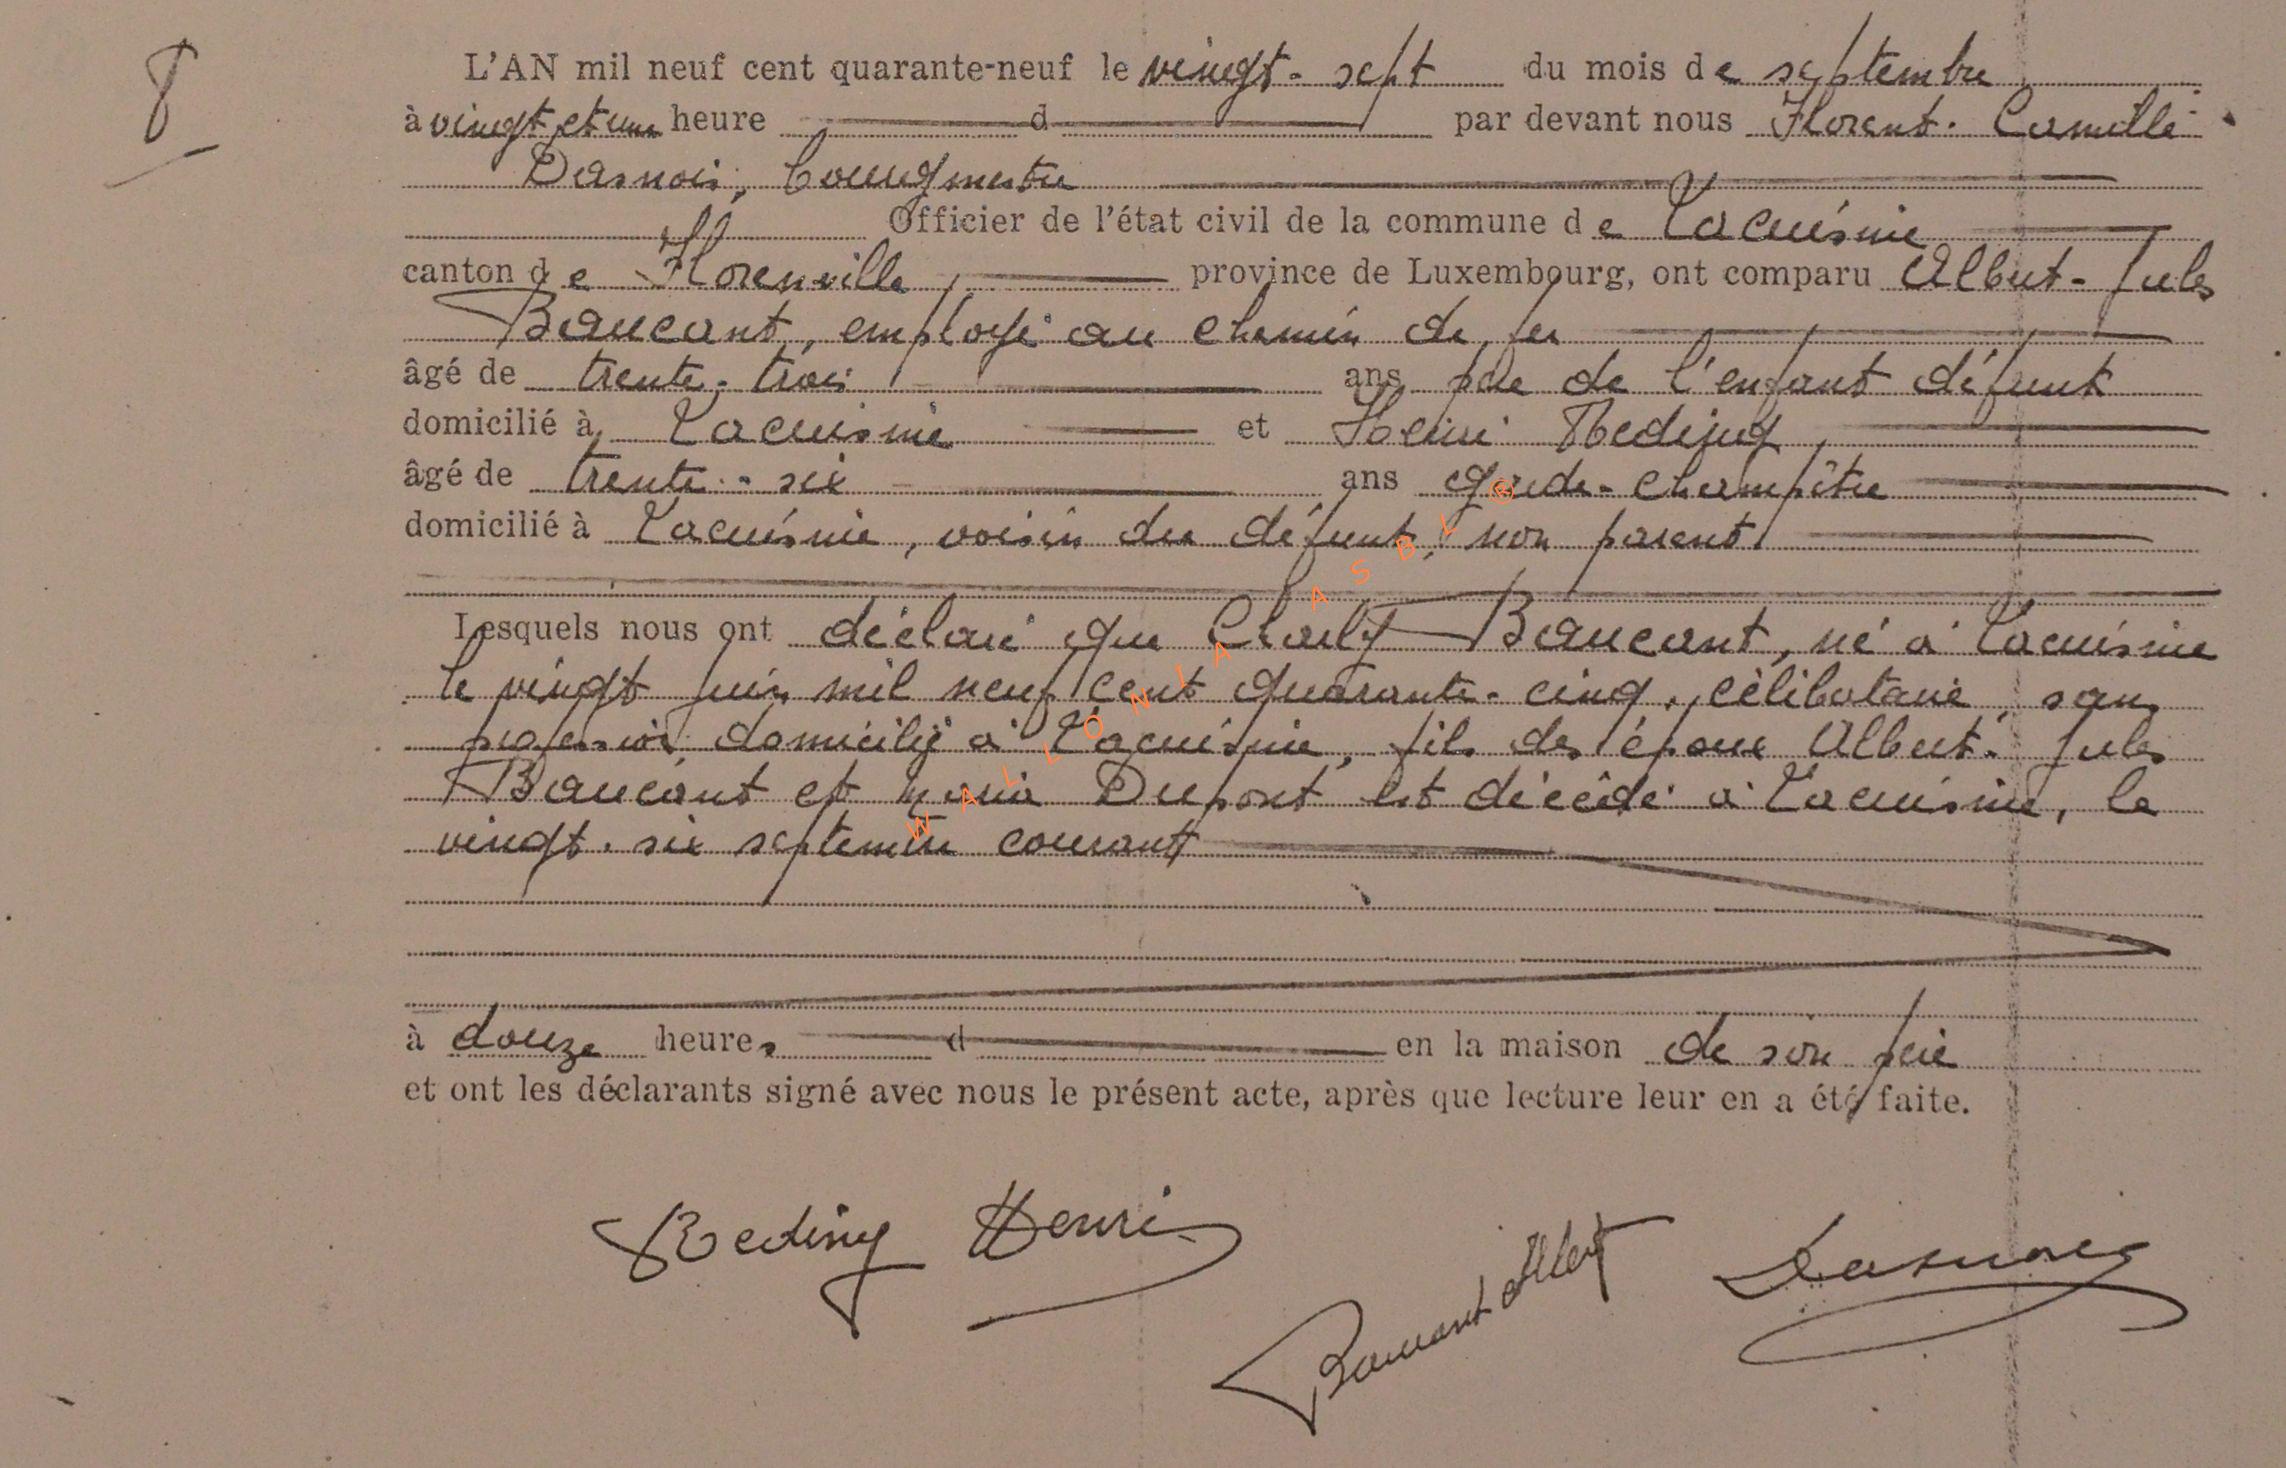 8
L'AN mil neuf cent quarante-neuf le vingt-sept du mois de septembre
à vingt et une heure d par devant nous Florent-Camille
Dasnois, bourgmestre
Officier de l'état civil de la commune de Lacuisine
canton de Florenville, province de Luxembourg, ont comparu Albert-Jules
Baucant, employé au chemin de fer
âgé de trente-trois ans père de l'enfant défunt
domicilié à Lacuisine et Henri Reding,
âgé de trente-six ans garde-champêtre
domicilié à Lacuisine, voisin du défunt, non parent
Lesquels nous ont déclaré que Charly Baucant, né à Lacuisine
le vingt juin mil neuf cent quarante-cinq, célibataire, sans
profession domicilié à Lacuisine, fils des époux Albert-Jules
Baucant et Maria Dupont est décédé à Lacuisine, le
vingt-six septembre courant
à douze heures d en la maison de son père
et ont les déclarants signé avec nous le présent acte, après que lecture leur en a été faite.
Reding Henri
Baucant Albert
Dasnois
WALLONIA ASBL ®